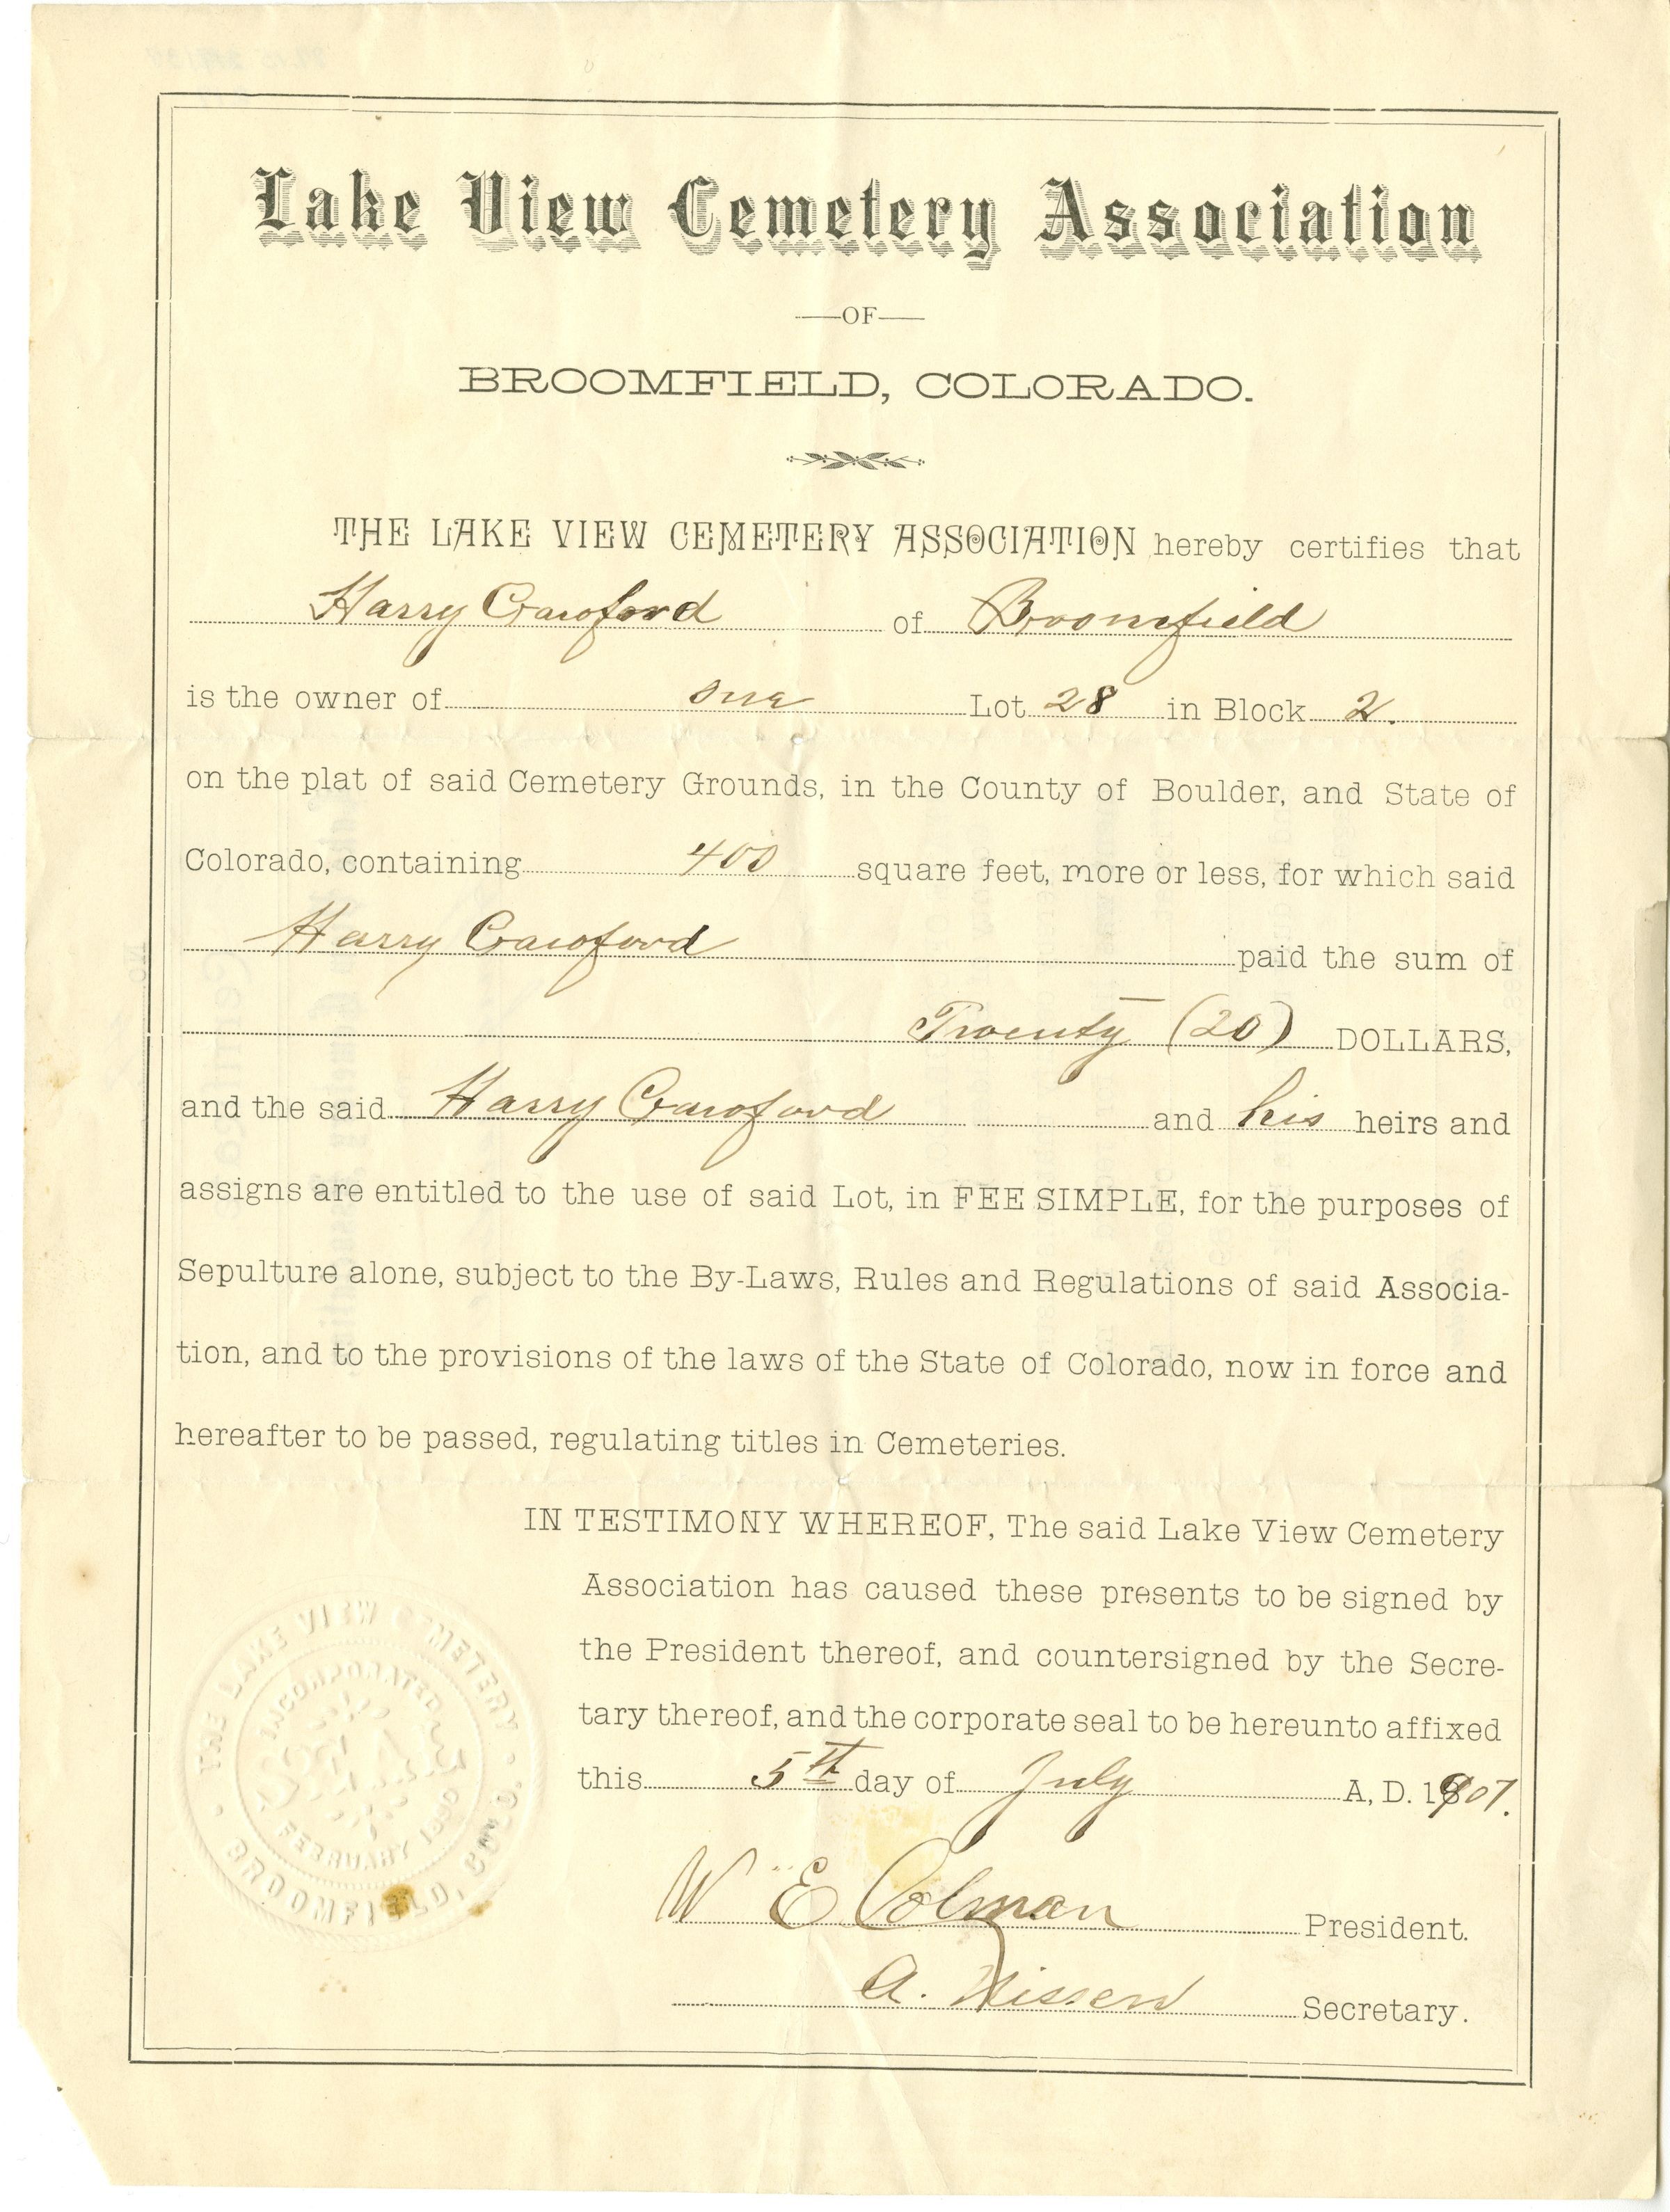 Lake View Cemetery Association
—OF—
BROOMFIELD, COLORADO.
THE LAKE VIEW CEMETERY ASSOCIATION hereby certifies that
Harry Crawford of Broomfield
is the owner of one Lot 28 in Block 2.
on the plat of said Cemetery Grounds, in the County of Boulder, and State of
Colorado, containing 400 square feet, more or less, for which said
Harry Crawford paid the sum of
Twenty (20) DOLLARS,
and the said Harry Crawford and his heirs and
assigns are entitled to the use of said Lot, in FEE SIMPLE, for the purposes of
Sepulture alone, subject to the By-Laws, Rules and Regulations of said Associa-
tion, and to the provisions of the laws of the State of Colorado, now in force and
hereafter to be passed, regulating titles in Cemeteries.
IN TESTIMONY WHEREOF, The said Lake View Cemetery
Association has caused these presents to be signed by
the President thereof, and countersigned by the Secre-
tary thereof, and the corporate seal to be hereunto affixed
this 5th day of July A, D. 1907.
W E Colman President.
A. Nissen Secretary.
THE LAKE VIEW CEMETERY
INCORPORATED
FEBRUARY 1890
BROOMFIELD, COLO.